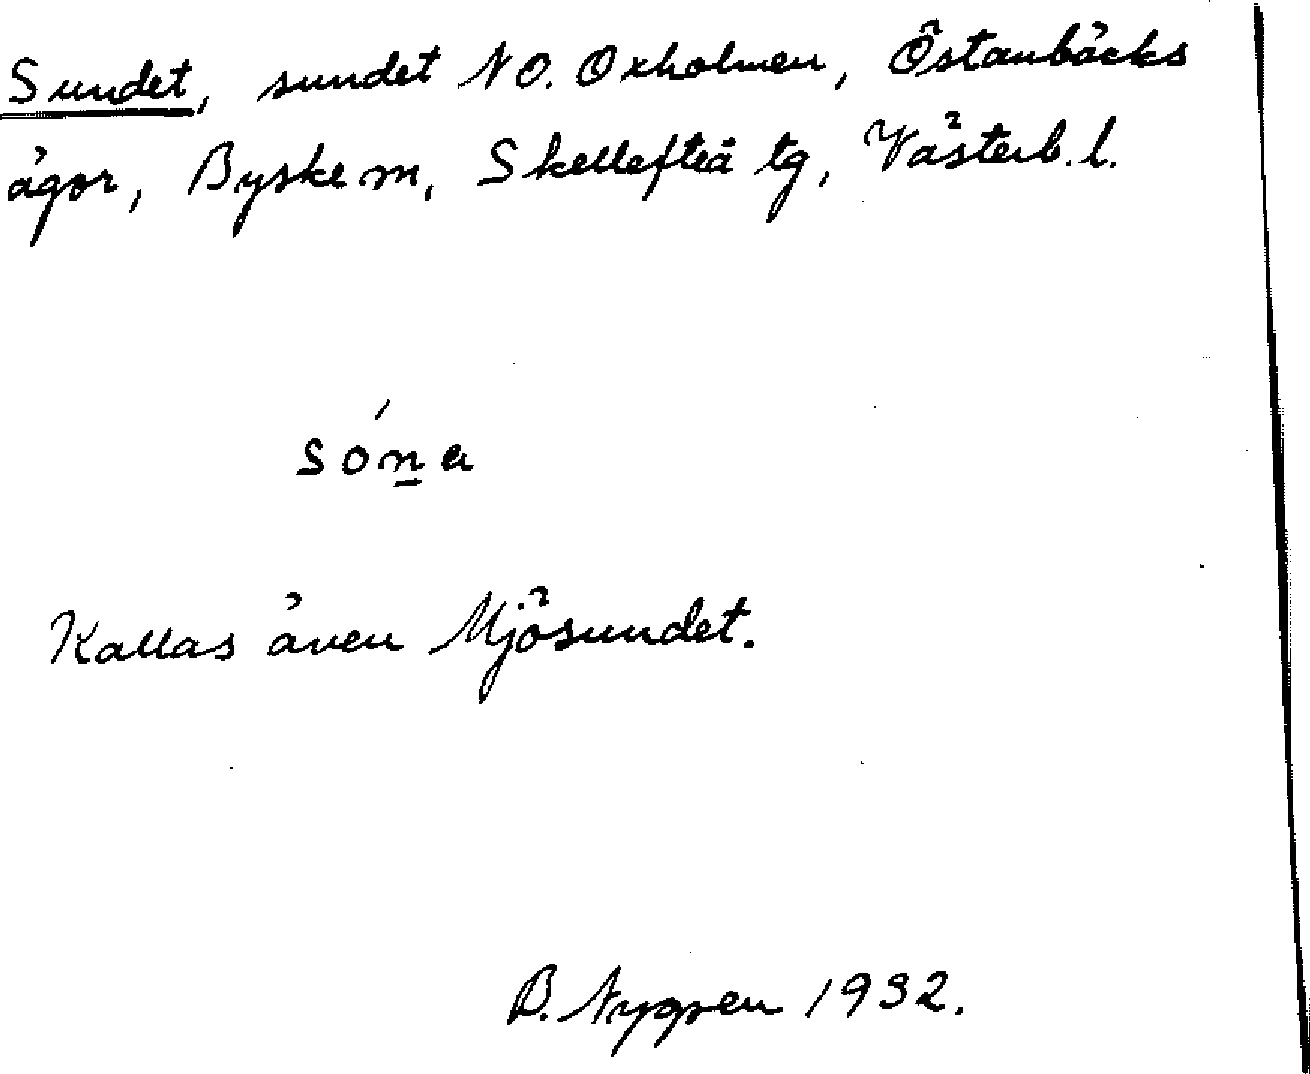 Sundet, sundet NO. Oxholmen, Östanbäcks
ägor, Byske m, Skellefteå tg, Västerb. l.
Kallas även Mjösundet.
B. Nygren 1932.